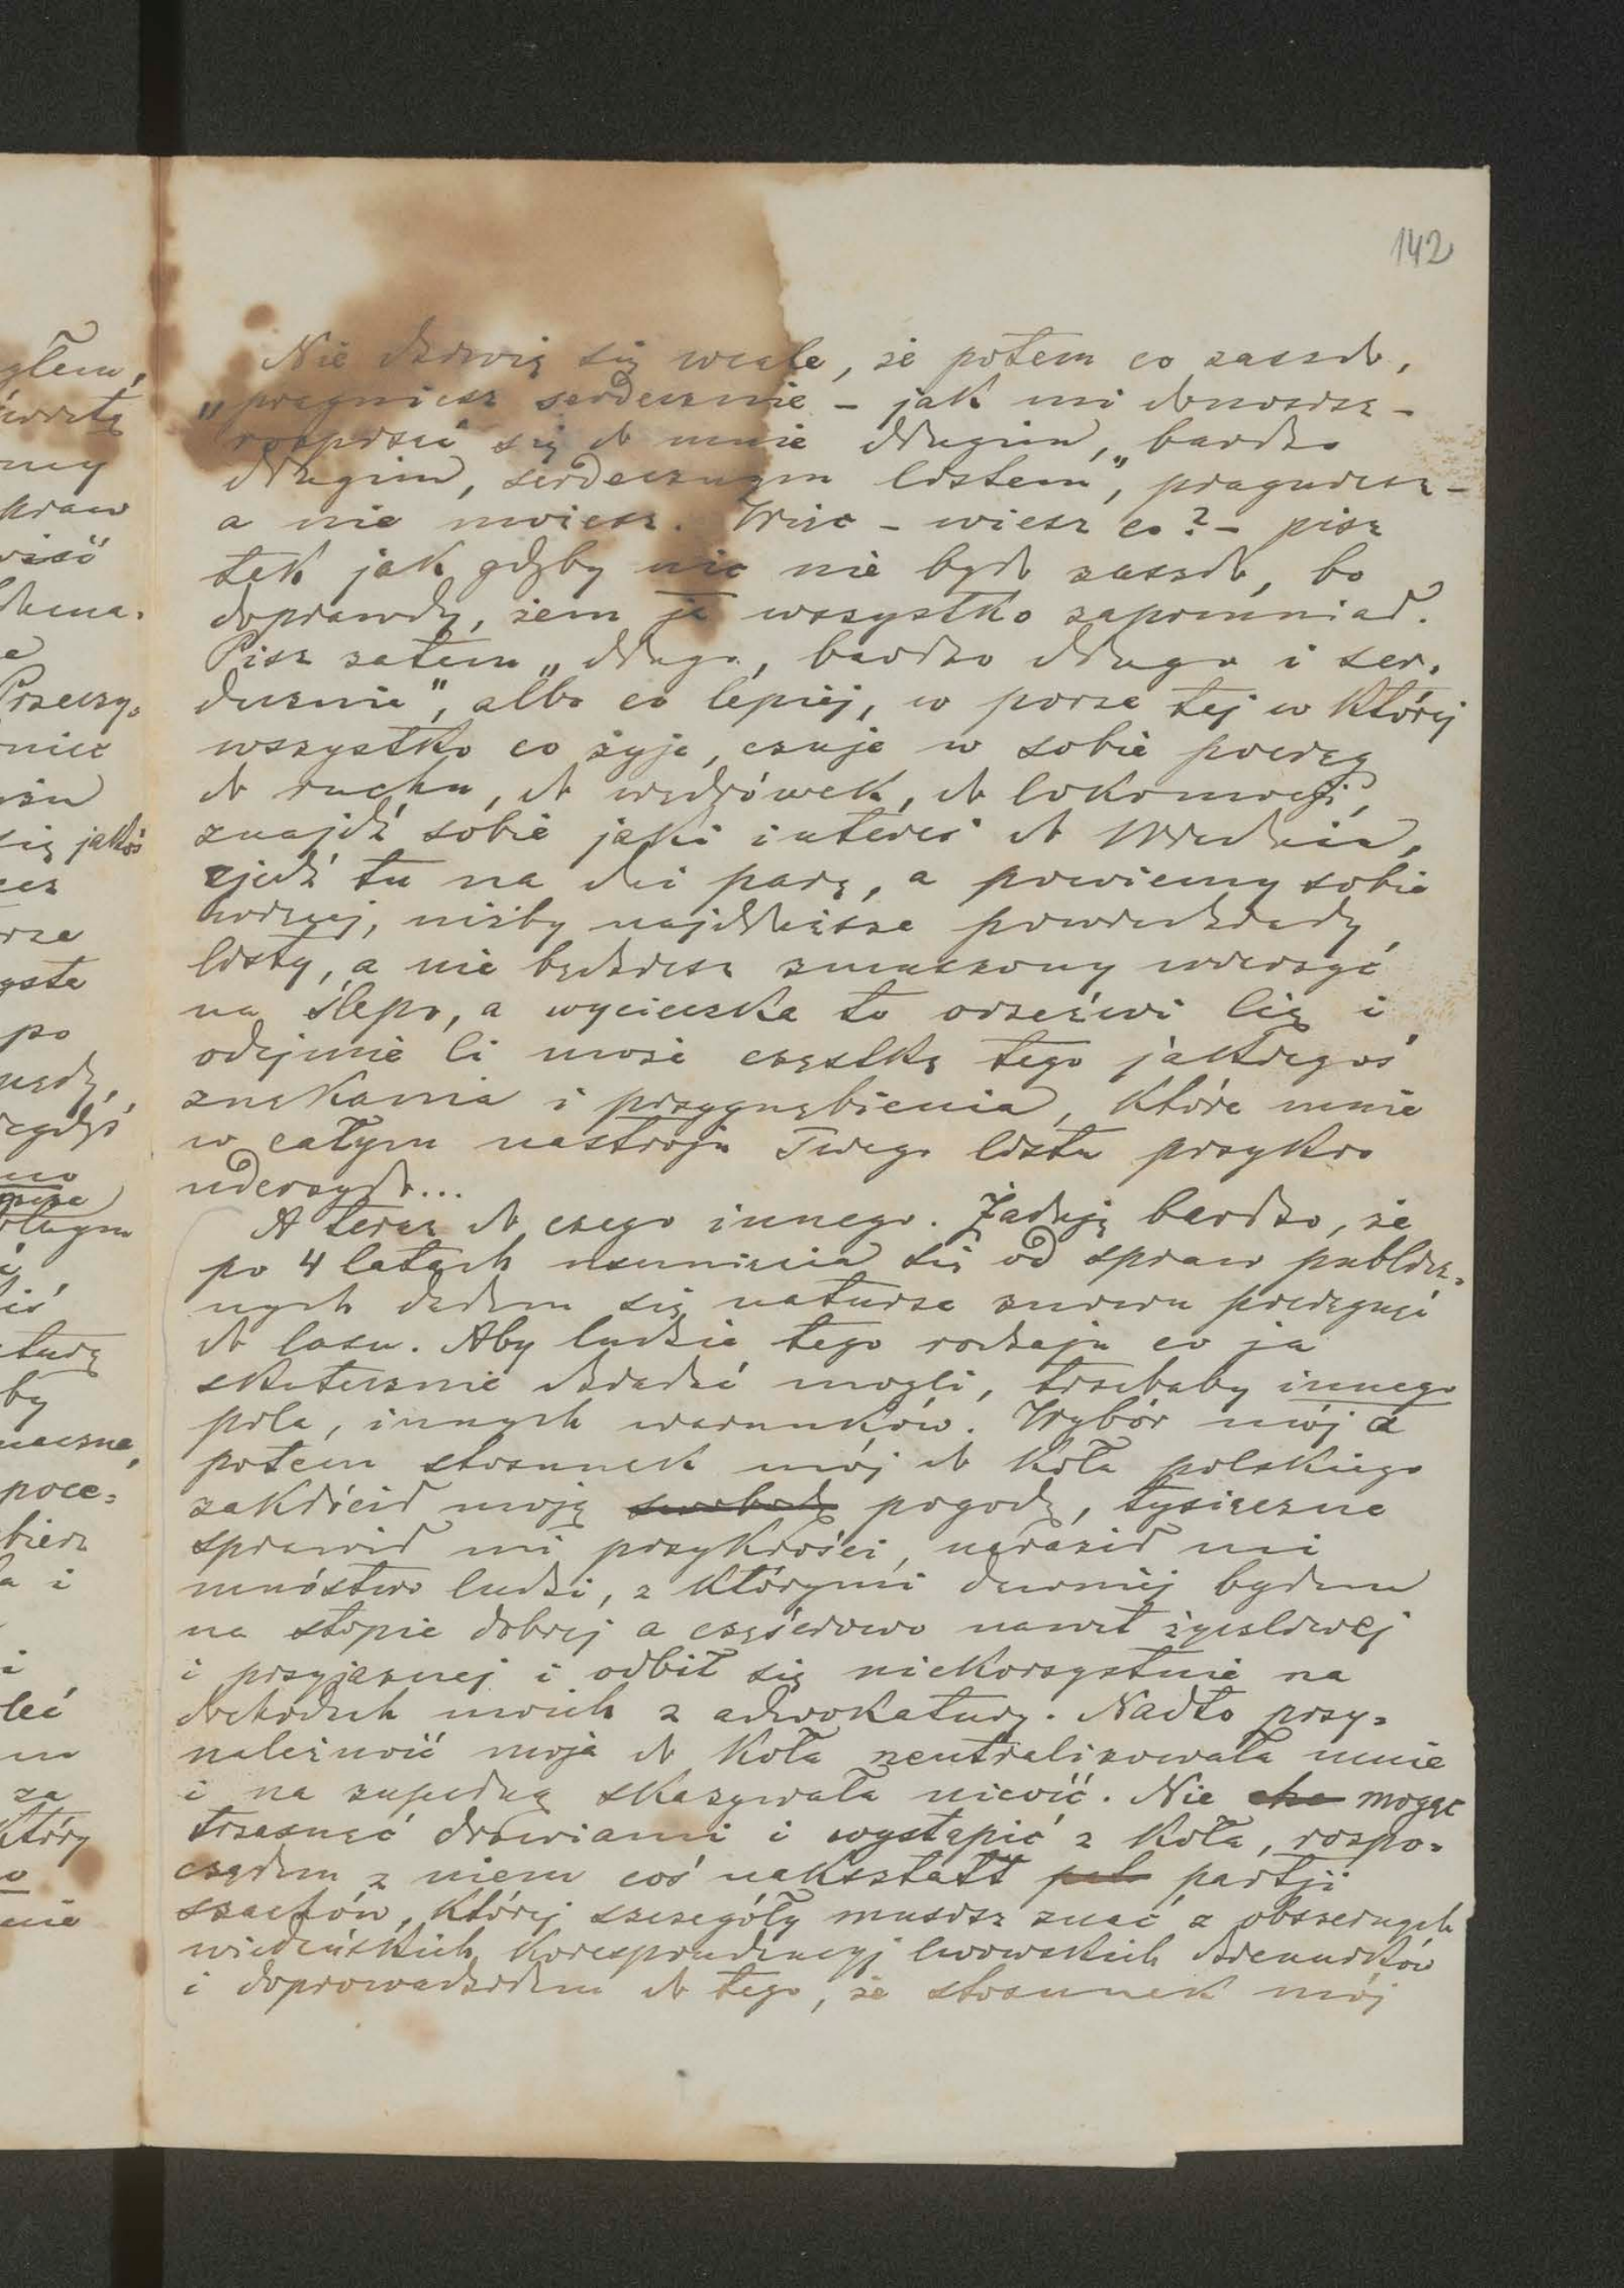 142
Nie dziwię się wcale, że potem co zaszło,
„pragniesz serdecznie – jak mi donosisz –
rozpisać się do mnie długim, bardzo
długim, serdecznym listem”, pragniesz –
a nie możesz. Więc – wiesz co? – pisz
tak jak gdyby nic nie było zaszło, bo
doprawdy, żem ja wszystko zapomniał.
Pisz zatem „długo, bardzo długo i ser-
decznie”, albo co lepiej, w porze tej w której
wszystko co żyje, czuje w sobie pociąg
do ruchu, do wędrówek, do lokomocji,
znajdź sobie jaki interes do Wiednia,
zjedź tu na dni parę, a powiemy sobie
więcej, niżby najdłuższe powiedziały
listy, a nie będziesz zmuszony wierzyć
na ślepo, a wycieczka ta orzeźwi Cię i
odejmie Ci może cząstkę tego jakiegoś
znękania i przygnębienia, które mnie
w całym nastroju Twego listu przykro
uderzyło...
A teraz do czego innego. Żałuję bardzo, że
po 4 latach usunięcia się od spraw publicz-
nych dałem się naturze znowu pociągnąć
do lasu. Aby ludzie tego rodzaju co ja
skutecznie działać mogli, trzebaby innego
pola, innych warunków. Wybór mój a
potem stosunek mój do Koła polskiego
zakłócił moją swobodę pogodę, tysiączne
sprawił mi przykrości, naraził mi
mnóstwo ludzi, z którymi dawniej byłem
na stopie dobrej a częściowo nawet życzliwej
i przyjaznej i odbił się niekorzystnie na
dochodach moich z adwokatury. Nadto przy-
należność moja do Koła neutralizowała mnie
i na zupełną skazywała nicość. Nie chc mogąc
trzasnąć drzwiami i wystąpić z Koła, rozpo-
cząłem z niem coś nakształt partji
szachów, której szczegóły musisz znać z obszernych
wiedeńskich korespondencyj lwowskich dzienników
i doprowadziłem do tego, że stosunek mój